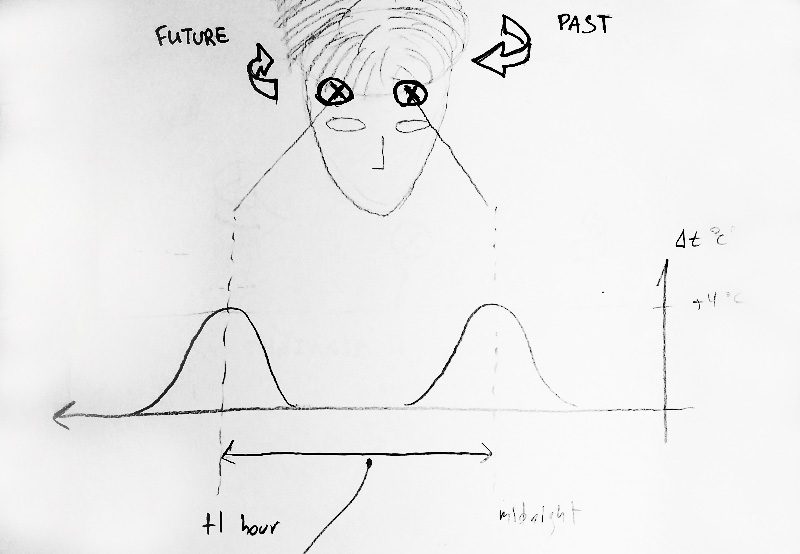 FUTURE
PAST
Δt °C
+4 °C
+1 hour
midnight